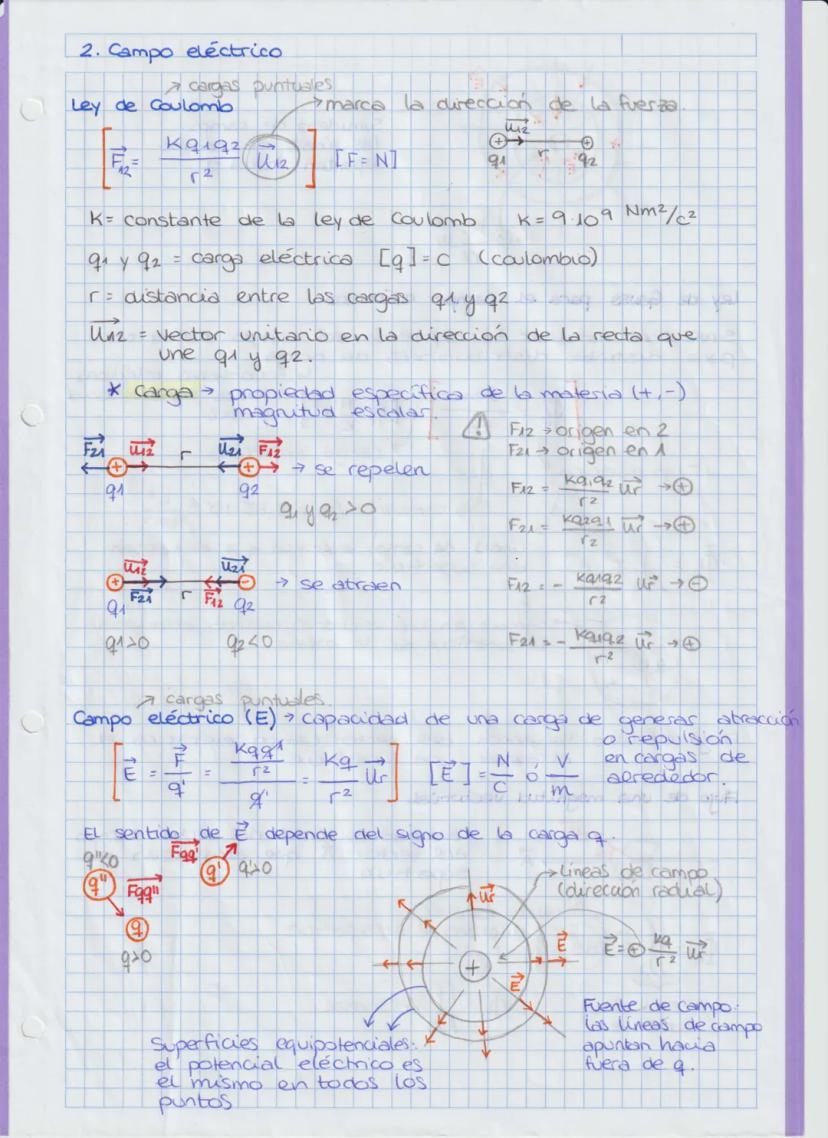 2. Campo eléctrico
→ cargas puntuales
Ley de Coulomb → marca la dirección de la fuerza.
[F⃗12 = Kq1q2/r² u⃗12] [F = N]
u⃗12
q1 r q2
K = constante de la ley de Coulomb K = 9·10⁹ Nm²/c²
q1 y q2 = carga eléctrica [q] = C (coulombio)
r = distancia entre las cargas q1 y q2
u⃗12 = vector unitario en la dirección de la recta que
une q1 y q2.
* Carga → propiedad específica de la materia (+,-)
magnitud escalar.
F⃗21 u⃗12 r u⃗21 F⃗12
+ + → se repelen
q1 q2
q1 y q2 > 0
⚠ F12 → origen en 2
F21 → origen en 1
F12 = Kq1q2/r² u⃗r → ⊕
F21 = Kq2q1/r² u⃗r → ⊕
u⃗12 u⃗21
+ - → se atraen
q1 F⃗21 r F⃗12 q2
q1>0 q2<0
F12 = - Kq1q2/r² u⃗r → ⊖
F21 = - Kq1q2/r² u⃗r → ⊕
→ cargas puntuales.
Campo eléctrico (E) → capacidad de una carga de generar atracción
o repulsión
en cargas de
alrededor.
[E⃗ = F⃗/q' = (Kqq'/r²)/q' = Kq/r² u⃗r] [E⃗] = N/C ó V/m
El sentido de E⃗ depende del signo de la carga q.
q''<0 F⃗qq' q' q'>0
q'' F⃗qq''
q
q>0
→ Líneas de campo
(dirección radial)
u⃗r
+ E⃗
E⃗
E⃗ = ⊕ Kq/r² u⃗r
Fuente de campo:
las líneas de campo
apuntan hacia
fuera de q.
Superficies equipotenciales:
el potencial eléctrico es
el mismo en todos los
puntos